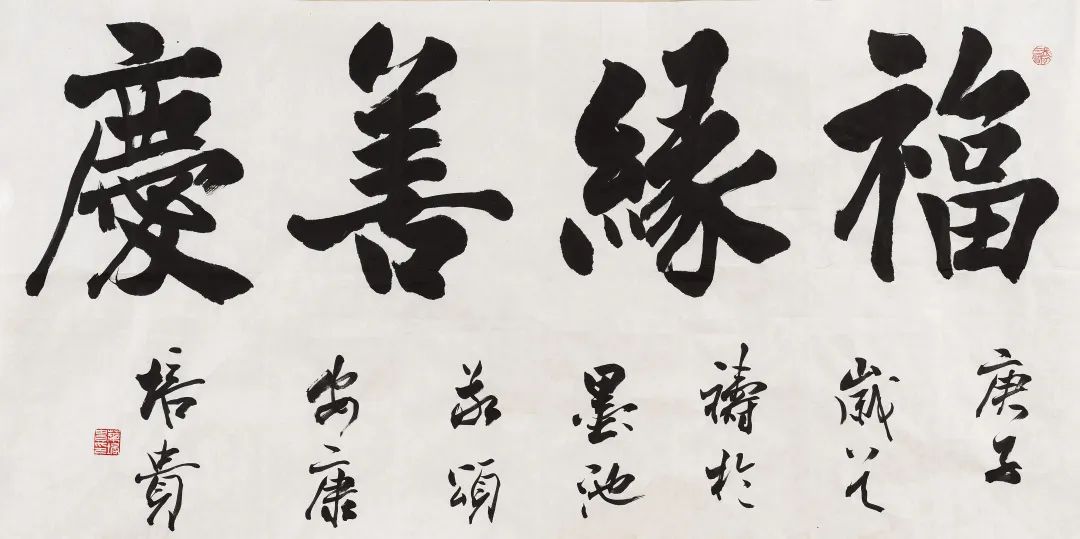 福緣善慶
庚子
歲
禱於
墨池
敬頌
安康
培貴